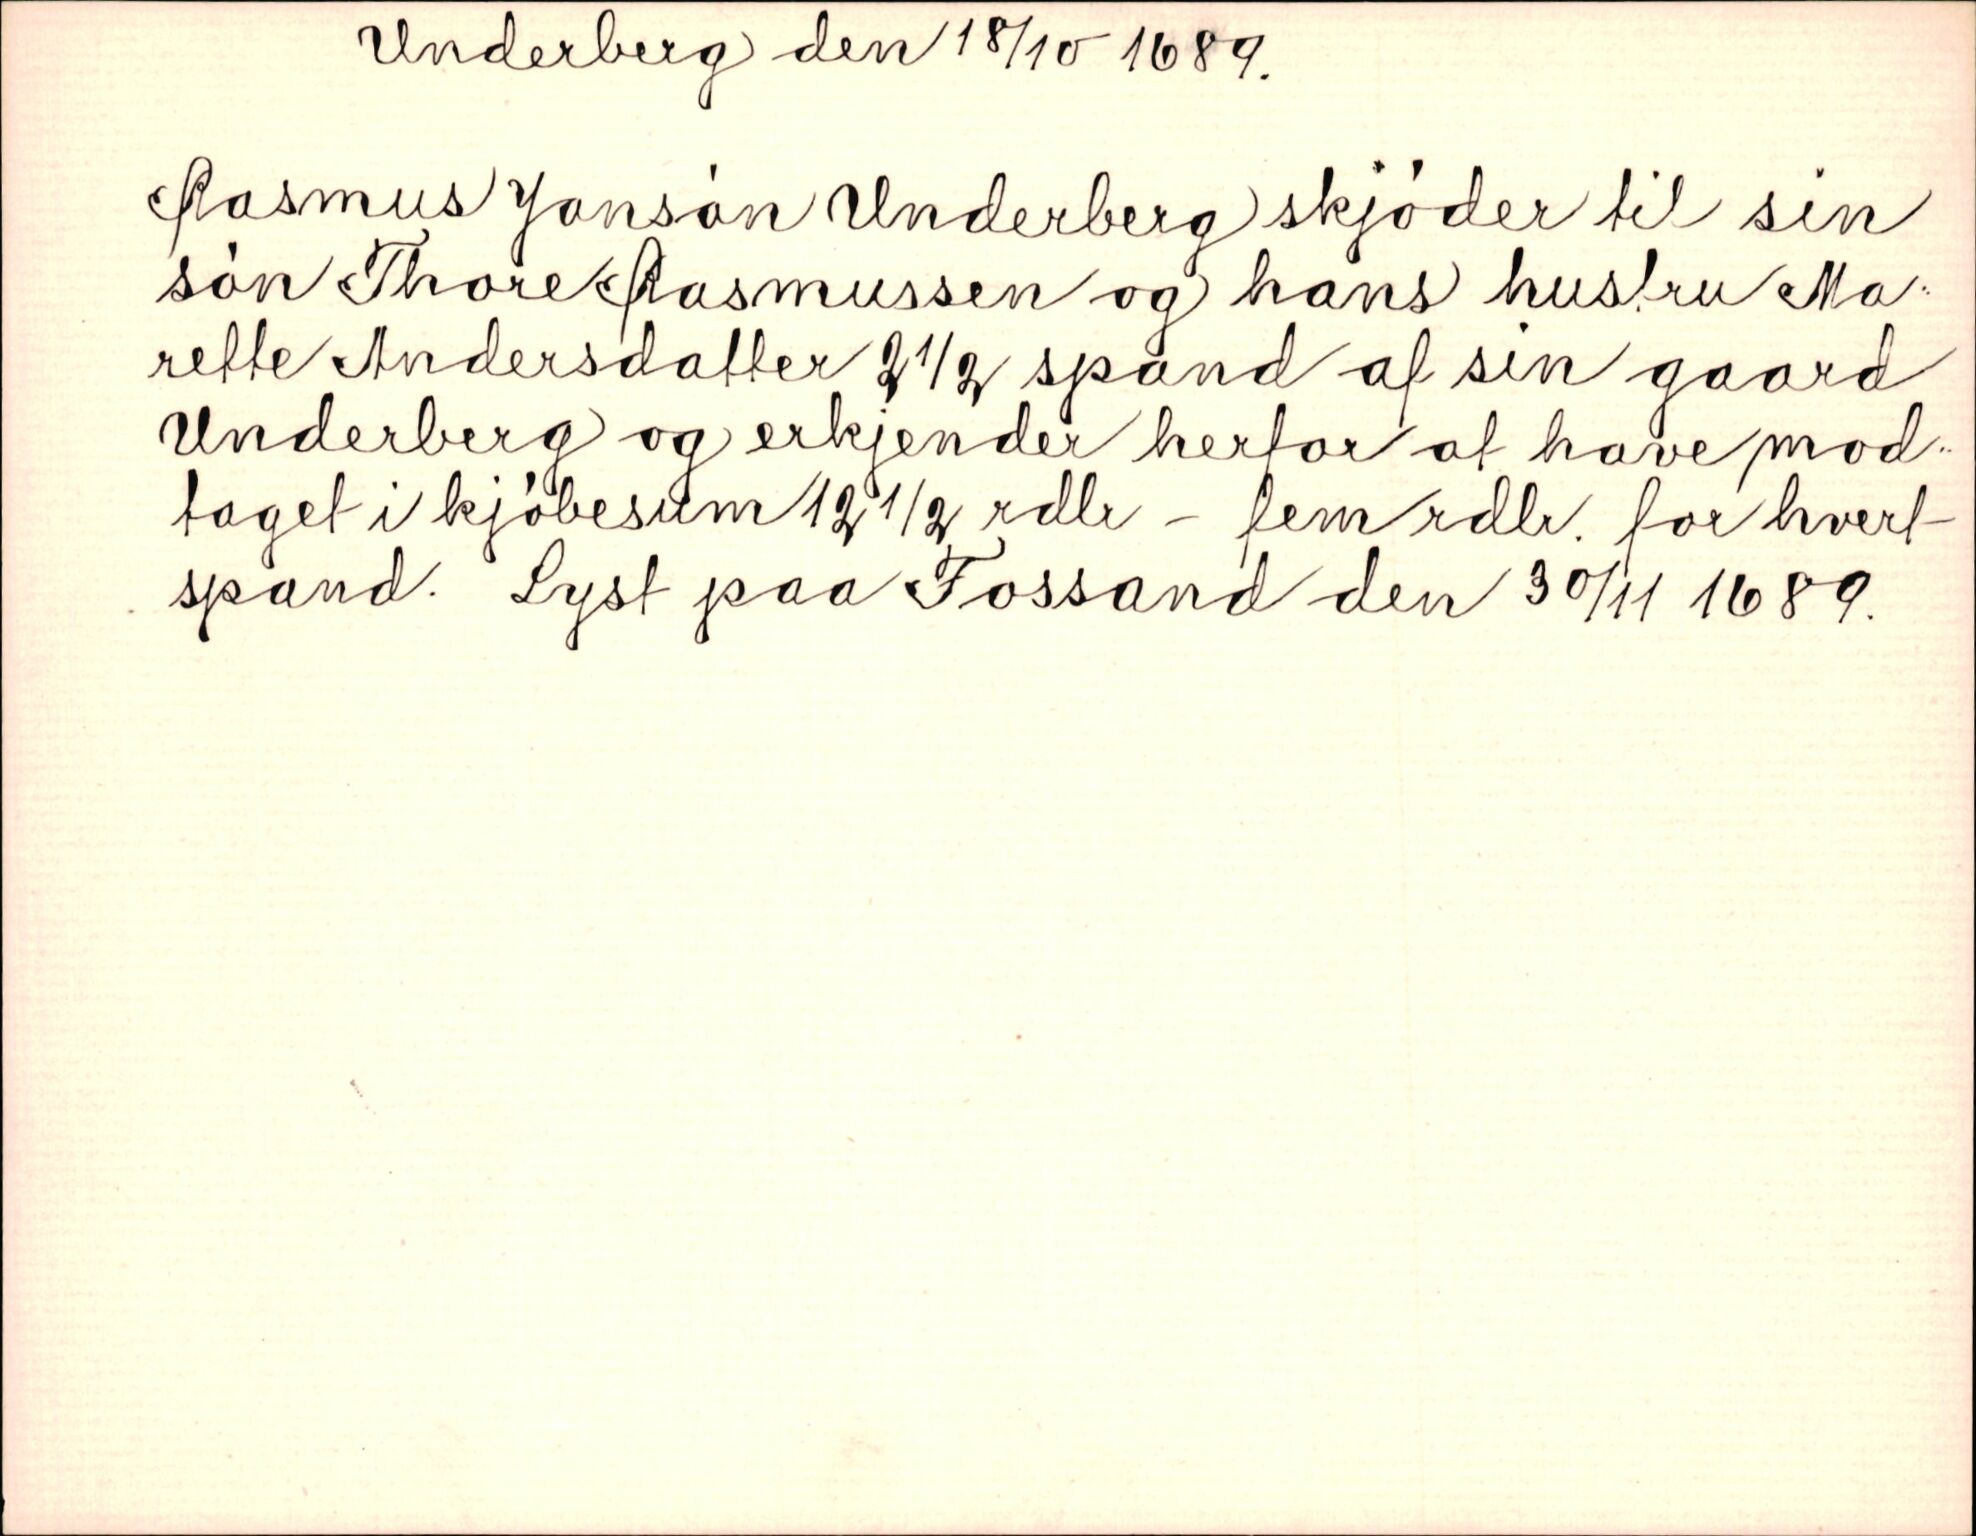 Underberg den 18/10 1689.
Rasmus Jonsön Underberg skjöder til sin
sön Thore Rasmussen og hans hustru Ma-
rette Andersdatter 2 1/2 spand af sin gaard
Underberg og erkjender herfor at have mod-
taget i kjöbesum 12 1/2 rdlr - fem rdlr. for hvert
spand. Lyst paa Fossand den 30/11 1689.